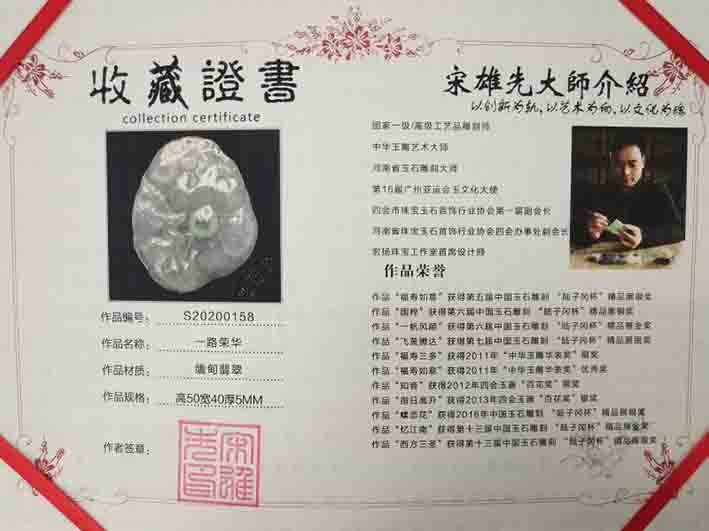 收藏證書
collection certificate
作品编号: S20200158
作品名称: 一路荣华
作品材质: 缅甸翡翠
作品规格: 高50宽40厚5MM
作者签章:
宋雄先印
宋雄先大師介紹
以创新为轨,以艺术为雨,以文化为魂
国家一级/高级工艺品雕刻师
中华玉雕艺术大师
河南省玉石雕刻大师
第16届广州亚运会玉文化大使
四会市珠宝玉石首饰行业协会第一届副会长
河南省珠宝玉石首饰行业协会四会办事处副会长
宏扬珠宝工作室首席设计师
作品荣誉
作品“福寿如意”获得第五届中国玉石雕刻 “陆子冈杯”精品展银奖
作品“国粹”获得第六届中国玉石雕刻 “陆子冈杯”精品展铜奖
作品“一帆风顺”获得第六届中国玉石雕刻 “陆子冈杯”精品展金奖
作品“飞黄腾达”获得第七届中国玉石雕刻 “陆子冈杯”精品展银奖
作品“福寿三多”获得2011年“中华玉雕华表奖”银奖
作品“福寿如意”获得2011年“中华玉雕华表奖”优秀奖
作品“知音”获得2012年四会玉器“百花奖”银奖
作品“指日高升”获得2013年四会玉器“百花奖”银奖
作品“蝶恋花”获得2016年中国玉石雕刻 “陆子冈杯”精品展银奖
作品“忆江南”获得第十三届中国玉石雕刻 “陆子冈杯”精品展金奖
作品“西方三圣”获得第十三届中国玉石雕刻 “陆子冈杯”精品展银奖